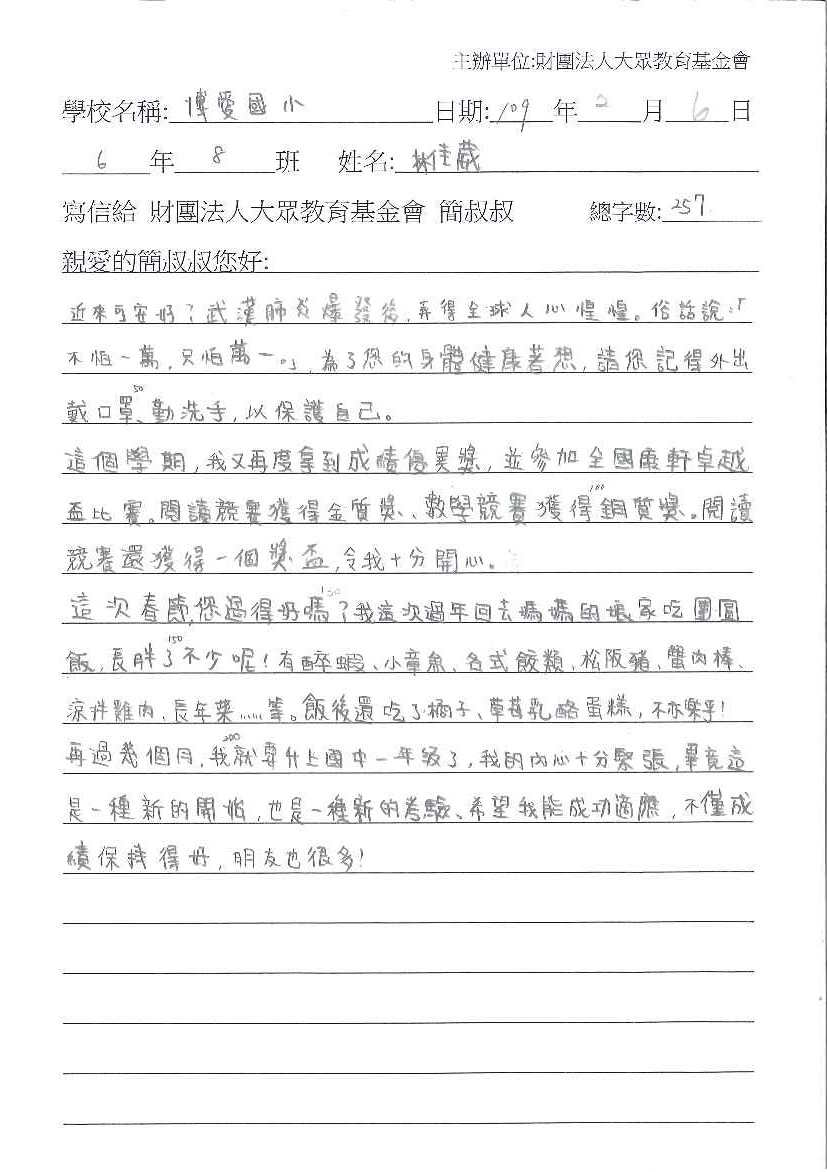 主辦單位:財團法人大眾教育基金會
學校名稱: 博愛國小 日期: 109 年 2 月 6 日
6 年 8 班 姓名: 林佳葳
寫信給 財團法人大眾教育基金會 簡叔叔 總字數: 257
親愛的簡叔叔您好:
近來可安好?武漢肺炎爆發後,弄得全球人心惶惶。俗話說:「
不怕一萬,只怕萬一。」,為了您的身體健康著想,請您記得外出
50
戴口罩、勤洗手,以保護自己。
這個學期,我又再度拿到成績優異獎,並參加全國康軒卓越
100
盃比賽。閱讀競賽獲得金質獎、數學競賽獲得銅質獎。閱讀
競賽還獲得一個獎盃,令我十分開心。
這次春節,您過得好嗎?我這次過年回去媽媽的娘家吃團圓
150
飯,長胖了不少呢!有醉蝦、小章魚、各式餃類、松阪豬、蟹肉棒、
涼拌雞肉、長年菜......等。飯後還吃了橘子、草莓乳酪蛋糕,不亦樂乎!
200
再過幾個月,我就要升上國中一年級了,我的內心十分緊張,畢竟這
是一種新的開始,也是一種新的考驗、希望我能成功適應,不僅成
績保持得好,朋友也很多!